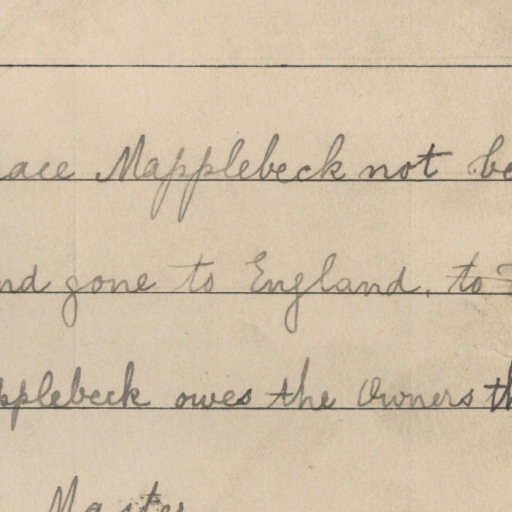 ace Mapplebeck not be
nd gone to England, to
pplebeck owes the Owners th
Master